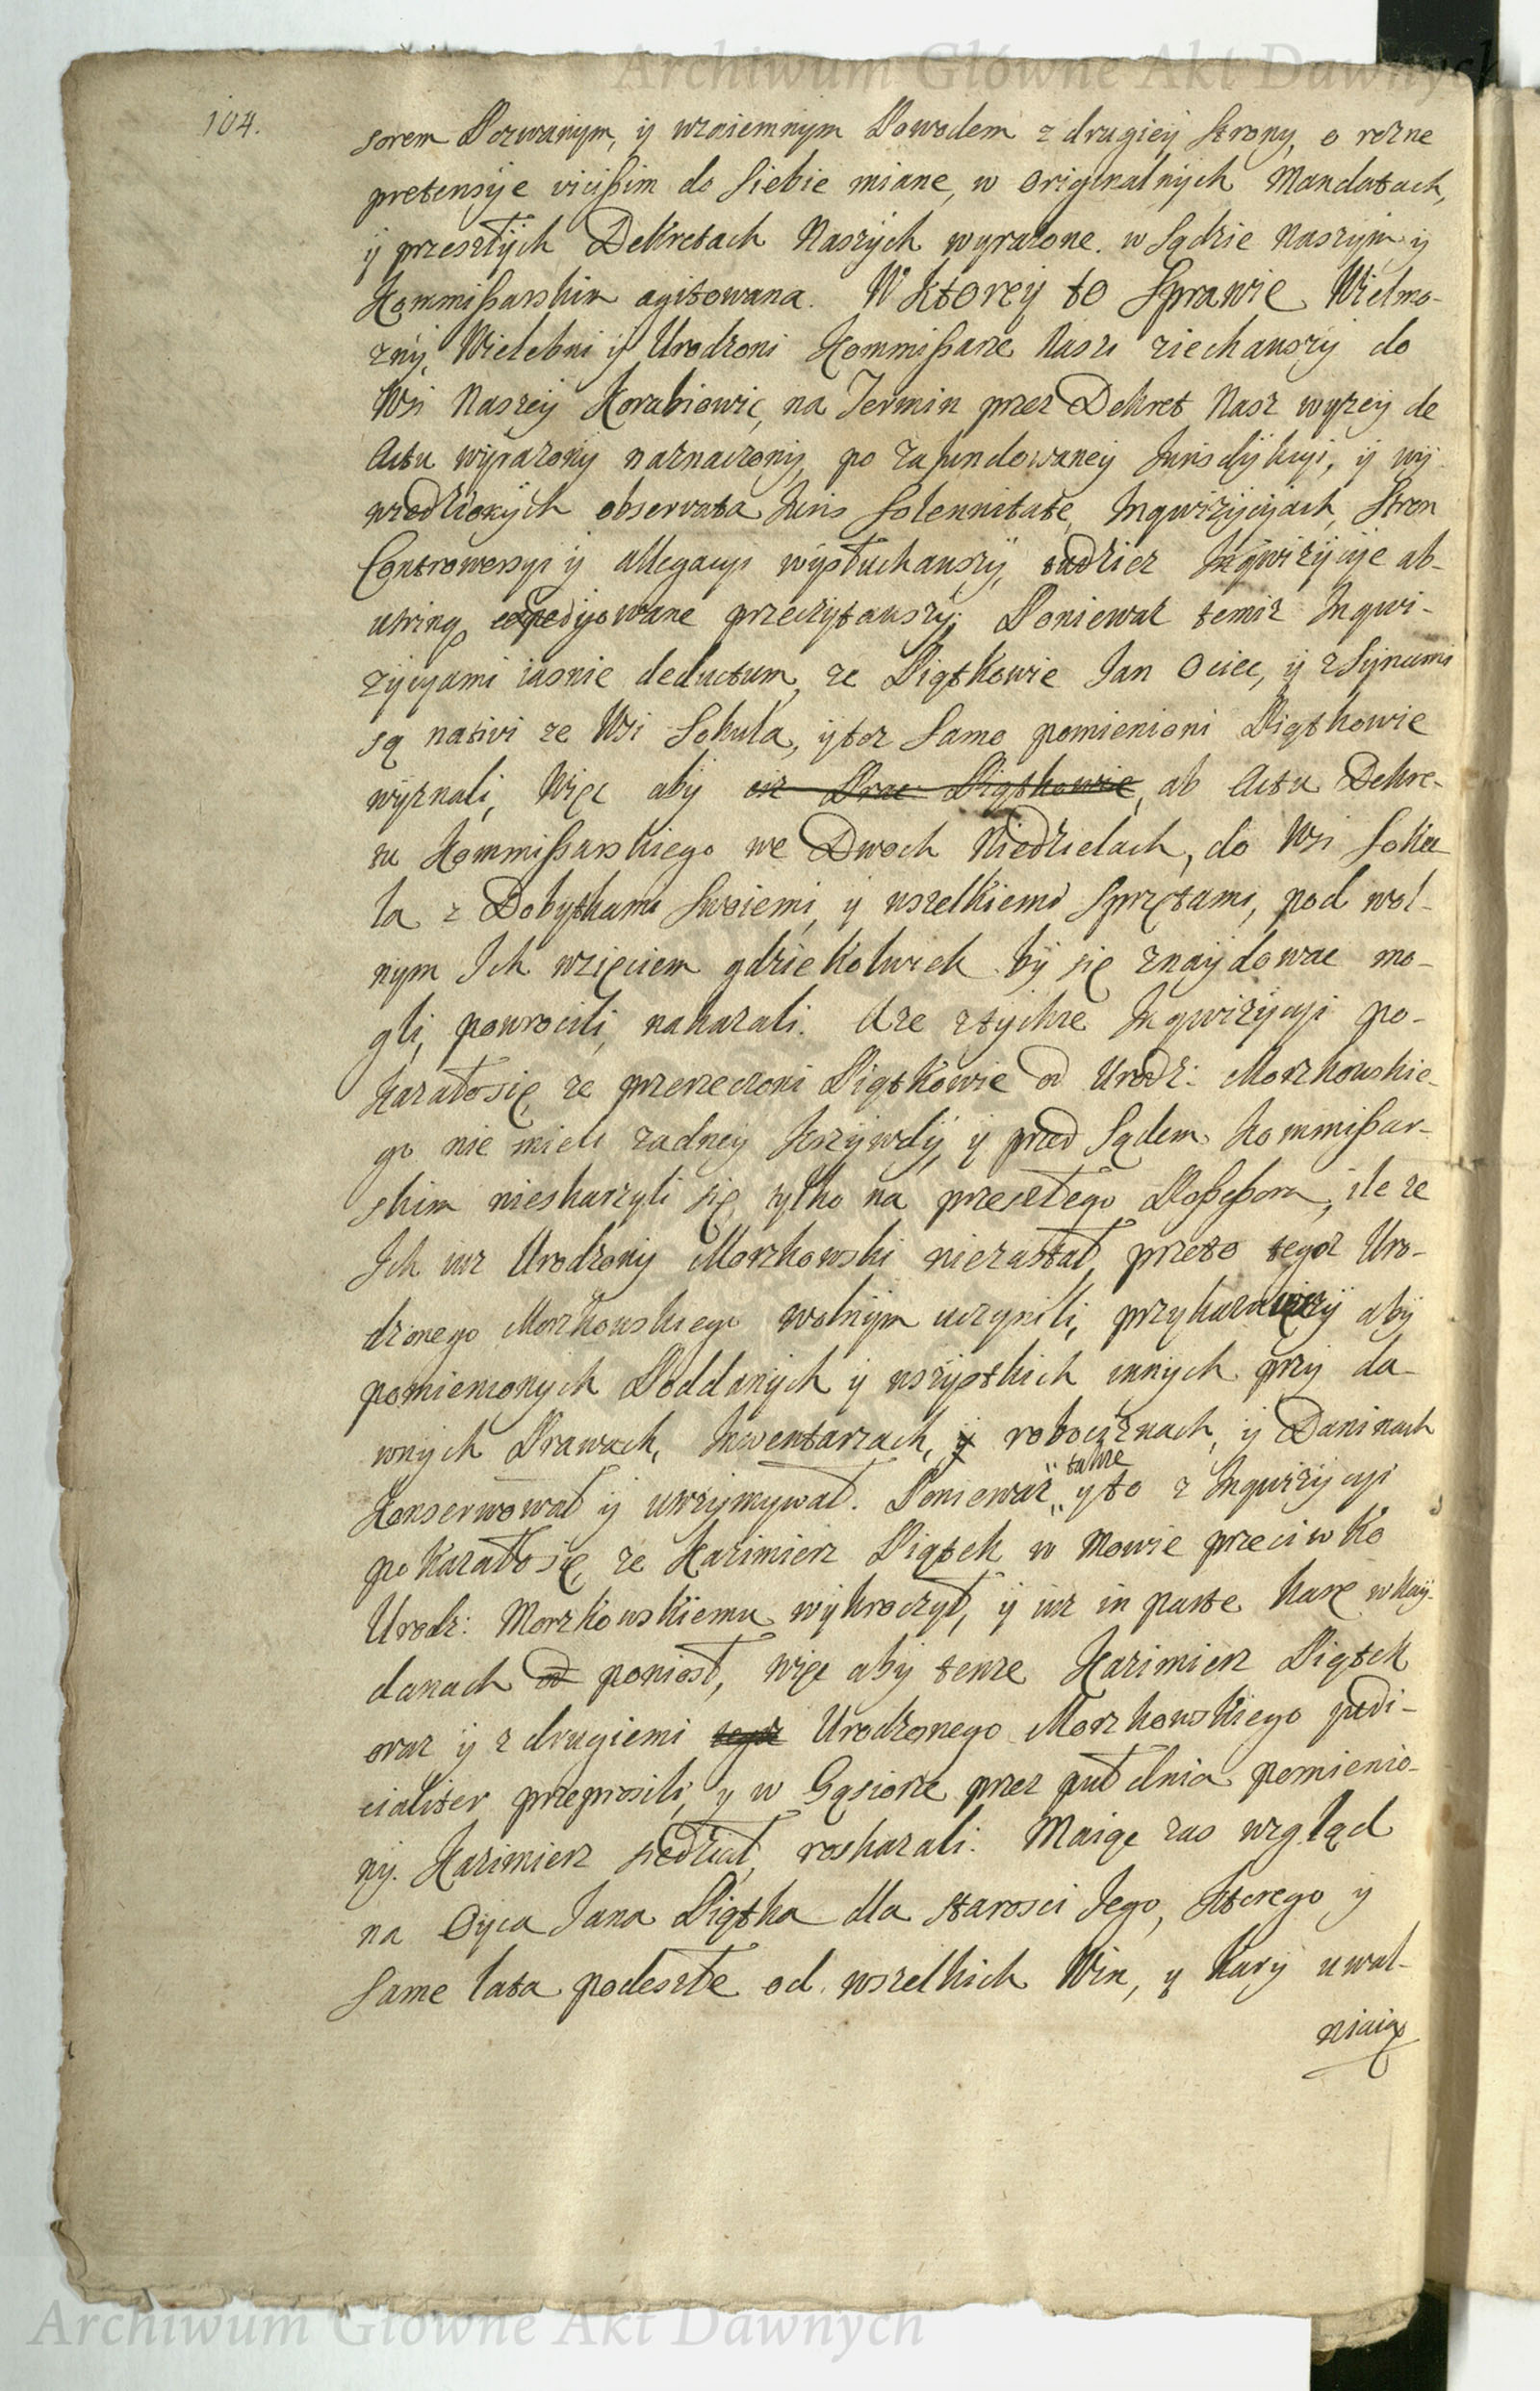 Archiwum Główne Akt Dawnych
104.
sorem Pozwanym, ÿ wzaiemnym Powodem z drugieÿ Strony, o rozne
pretensÿe vicißim do Siebie miane, w Originalnÿch Mandatach,
ÿ przeszłÿch Dekretach Naszÿch wyrazone. w Sądzie Naszÿm ÿ
Kommißarskim agitowana. W Ktoreÿ to Sprawie Wielmo-
znÿ, Wielebni ÿ Urodzoni Kommißarze Nasi ziechawszÿ do
Wsi Naszeÿ Korabiewic, na Termin przez Dekret Nasz wyzeÿ de
Actu wÿrazonÿ naznaczonÿ, po zafundowaneÿ Jurisdÿkcÿi, ÿ wÿ-
wiedzionÿch observata Juris Solennitate, Inqwizÿcÿach, Stron
Controwersÿi ÿ allegacÿi wÿsłuchawszÿ, tudziez Inqwizÿcÿe ab-
utrinq expedÿowane przeczÿtawszÿ; Poniewaz temiz Inqwi-
zÿcÿami iasnie deductum, ze Piątkowie Jan Ociec, ÿ z Sÿnami
są nativi ze Wsi Sokula, ÿtoz Samo pomienioni Piątkowie
wÿznali, Więc abÿ ciz Prac. Piątkowie, ab Actu Dekre-
tu Kommißarskiego we Dwoch Niedzielach, do Wsi Soku-
la z Dobytkami Swoiemi, ÿ wszelkiemi Sprzętami, pod wol-
nym Ich wzięciem gdziekolwiek bÿ się znaÿdowac mo-
gli, powrocili, nakazali. A ze ztÿchze Inqwizÿcÿi po-
kazało się, ze przerzeczoni Piątkowie od Urodz: Morzkowskie-
go nie mieli zadneÿ Krzÿwdÿ, ÿ przed Sądem Kommißar-
skim nieskarzyli się tylko na przeszłego Poßeßora, ile ze
Ich iuz Urodzonÿ Morzkowski niezastał, przeto tegoz Uro-
dzonego Morzkowskiego wolnÿm uczynili, przykazawszÿ abÿ
pomienionych Poddanÿch ÿ wszÿstkich innÿch przÿ da-
wnÿch Prawach, Inwentarzach, ÿ robociznach, ÿ Daninach
takze
Konserwował ÿ utrzÿmywał. Poniewaz ÿto z Inqwizÿcÿi
pokazało się, ze Kazimierz Piątek w Mowie przeciwko
Urodz: Morzkowskiemu wÿkroczÿł, ÿ iuz in parte karę w kaÿ-
danach od poniosł, więc abÿ tenze Kazimierz Piątek
oraz ÿ z drugiemi tegoz Urodzonego Morzkowskiego judi-
cialiter przeprosili, ÿ w Gąsiorze przez puł dnia pomienio-
nÿ. Kazimierz siedział, roskazali. Maiąc zas wzgląd
na Oÿca Jana Piątka dla starosci Jego, Ktorego ÿ
Same lata podeszłe od wszelkich Win, ÿ Karÿ uwal-
niaią
Archiwum Główne Akt Dawnych